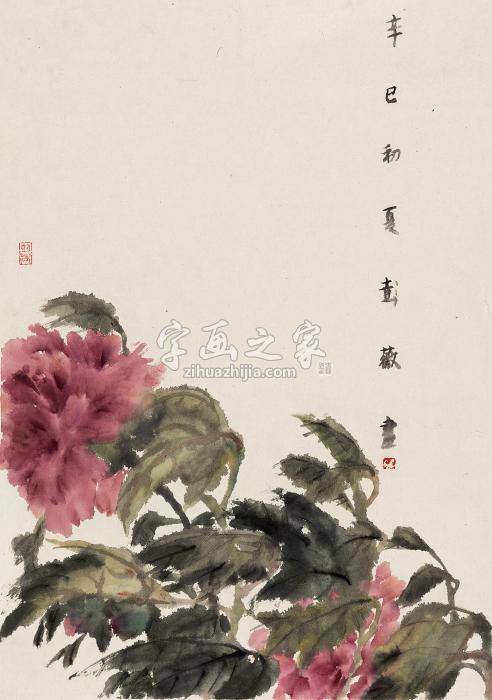 辛巳初夏彭薇畫
字画之家
zihuazhijia.com